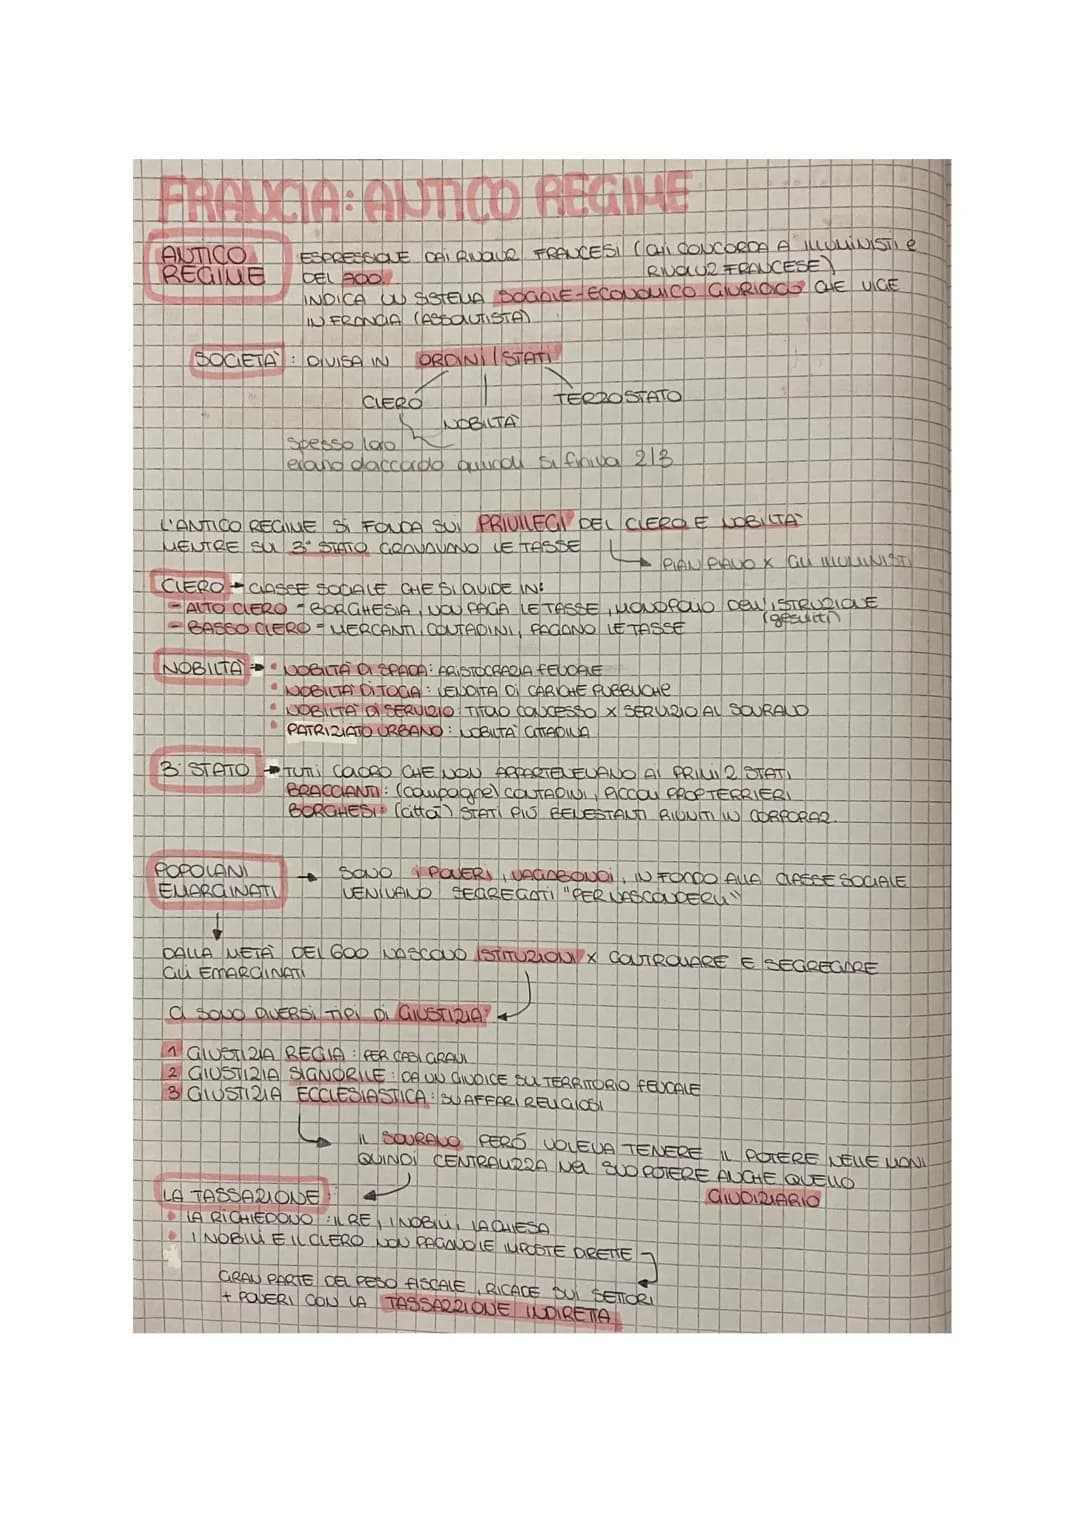 FRANCIA: ANTICO REGIME
ANTICO REGIME
ESPRESSIONE DAI RIVOLUZ FRANCESI (CHI CONCORDA A ILLUMINISTI e RIVOLUZ FRANCESE)
DEL 700.
INDICA UN SISTEMA SOCIALE-ECONOMICO GIURIDICO CHE VIGE
IN FRANCIA (ASSOLUTISTA)
SOCIETÀ: DIVISA IN ORDINI/STATI
CLERO NOBILTÀ TERZO STATO
spesso loro
erano d'accordo quindi si finiva 2/3
L'ANTICO REGIME SI FONDA SUI PRIVILEGI DEL CLERO E NOBILTÀ
MENTRE SU 3° STATO GRAVAVANO LE TASSE
PIAN PIANO X GLI ILLUMINISTI
CLERO → CLASSE SOCIALE CHE SI DIVIDE IN:
- ALTO CLERO = BORGHESIA, NON PAGA LE TASSE, MONOPOLIO DELL'ISTRUZIONE (gesuiti)
- BASSO CLERO = MERCANTI, CONTADINI, PAGANO LE TASSE
NOBILTÀ → • NOBILTÀ DI SPADA: ARISTOCRAZIA FEUDALE
• NOBILTÀ DI TOGA: VENDITA DI CARICHE PUBBLICHE
• NOBILTÀ DI SERVIZIO: TITOLO CONCESSO X SERVIZIO AL SOVRANO
• PATRIZIATO URBANO: NOBILTÀ CITTADINA
3° STATO → TUTTI COLORO CHE NON APPARTENEVANO AI PRIMI 2 STATI
BRACCIANTI: (campagne) CONTADINI, PICCOLI PROP TERRIERI
BORGHESI: (città) STATI PIÙ BENESTANTI RIUNITI IN CORPORAZ.
POPOLANI EMARGINATI → SONO I POVERI, VAGABONDI, IN FONDO ALLA CLASSE SOCIALE
VENIVANO SEGREGATI "PER NASCONDERLI"
DALLA METÀ DEL 600 NASCONO ISTITUZIONI X CONTROLLARE E SEGREGARE
GLI EMARGINATI
CI SONO DIVERSI TIPI DI GIUSTIZIA
1 GIUSTIZIA REGIA: PER CASI GRAVI
2 GIUSTIZIA SIGNORILE: DA UN GIUDICE SUL TERRITORIO FEUDALE
3 GIUSTIZIA ECCLESIASTICA: SU AFFARI RELIGIOSI
IL SOVRANO PERÒ VOLEVA TENERE IL POTERE NELLE MANI
QUINDI CENTRALIZZA NEL SUO POTERE ANCHE QUELLO
GIUDIZIARIO
LA TASSAZIONE:
• LA RICHIEDONO: IL RE, I NOBILI, LA CHIESA
• I NOBILI E IL CLERO NON PAGANO LE IMPOSTE DIRETTE
GRAN PARTE DEL PESO FISCALE, RICADE SUI SETTORI
+ POVERI CON LA TASSAZZIONE INDIRETTA